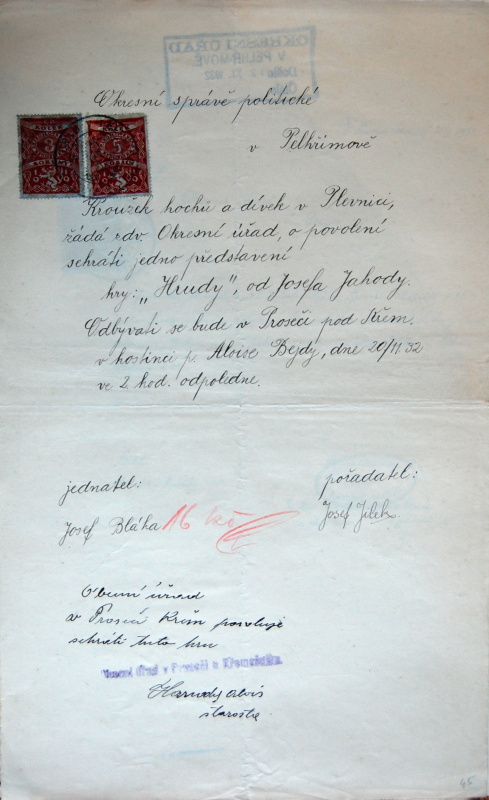 OKRESNÍ ÚŘAD
V PELHŘIMOVĚ
Okresní správě politické
v Pelhřimově
3
5
Kroužek hochů a dívek v Plevnici,
žádá zdv. Okresní úřad, o povolení
sehráti jedno představení
hry: „Hrudy", od Josefa Jahody.
Odbývati se bude v Proseči pod Křem.
v hostinci p. Aloise Bejdy, dne 20/11. 32
ve 2. hod. odpoledne.
jednatel:
pořadatel:
Josef Bláha 16 Kč
Josef Jílek
Obecní úřad
v Proseči Křem povoluje
sehráti tuto hru
Obecní úřad v Proseči u Křemešníka.
starosta
45